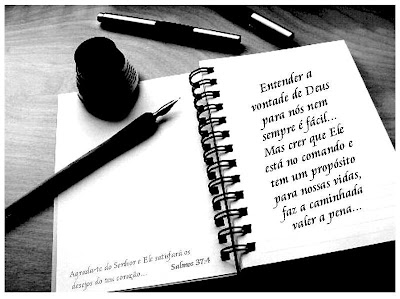 Entender a
vontade de Deus
para nós nem
sempre é fácil...
Mas crer que Ele
está no comando e
tem um propósito
para nossas vidas,
faz a caminhada
valer a pena...
Agrada-te do Senhor e Ele satisfará os
desejos do teu coração...
Salmos 37:4